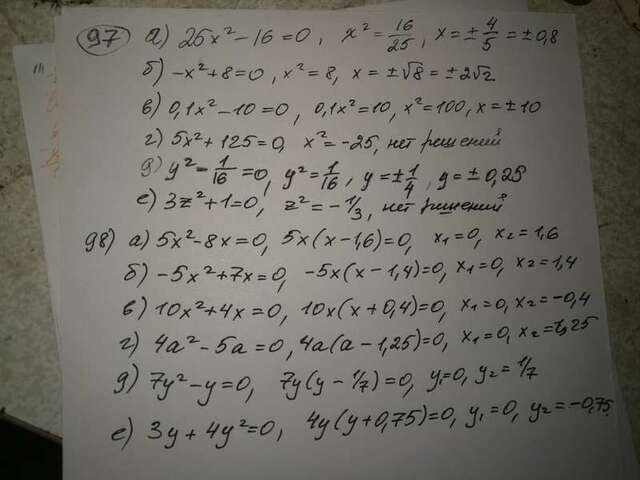 97 а) 25x² - 16 = 0, x² = 16/25, x = ± 4/5 = ± 0,8
б) -x² + 8 = 0, x² = 8, x = ±√8 = ±2√2
в) 0,1x² - 10 = 0, 0,1x² = 10, x² = 100, x = ± 10
г) 5x² + 125 = 0, x² = -25, нет решений
д) y² - 1/16 = 0, y² = 1/16, y = ± 1/4, y = ± 0,25
е) 3z² + 1 = 0, z² = -1/3, нет решений
98) а) 5x² - 8x = 0, 5x(x - 1,6) = 0, x₁ = 0, x₂ = 1,6
б) -5x² + 7x = 0, -5x(x - 1,4) = 0, x₁ = 0, x₂ = 1,4
в) 10x² + 4x = 0, 10x(x + 0,4) = 0, x₁ = 0, x₂ = -0,4
г) 4a² - 5a = 0, 4a(a - 1,25) = 0, x₁ = 0, x₂ = 1,25
д) 7y² - y = 0, 7y(y - 1/7) = 0, y₁ = 0, y₂ = 1/7
е) 3y + 4y² = 0, 4y(y + 0,75) = 0, y₁ = 0, y₂ = -0,75